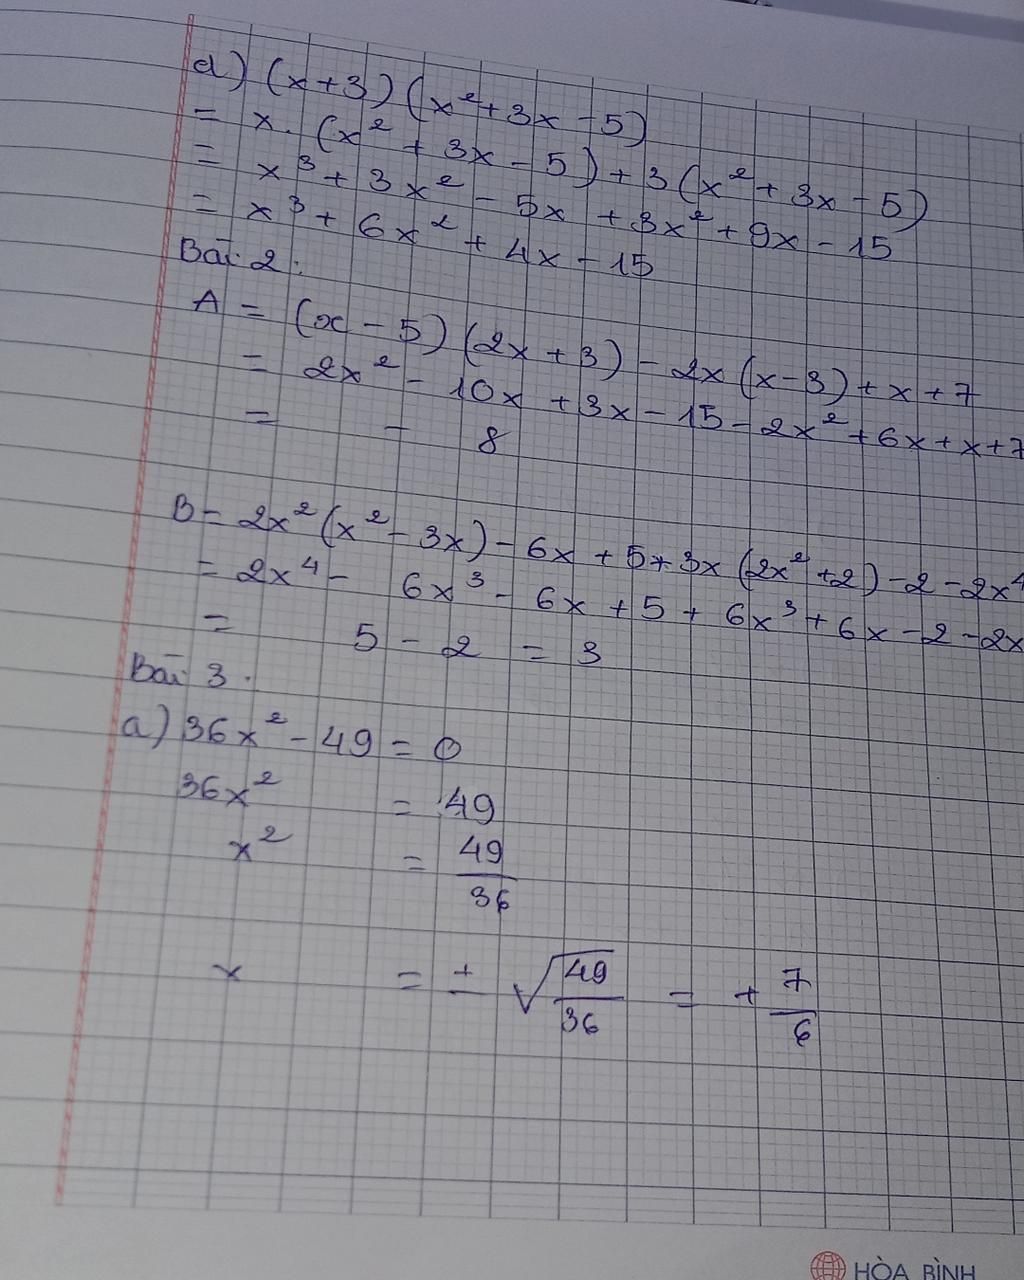 d) (x+3)(x²+3x-5)
= x.(x²+3x-5)+3(x²+3x-5)
= x³+3x²-5x+3x²+9x-15
= x³+6x²+4x-15
Bài 2.
A = (x-5)(2x+3)-2x(x-3)+x+7
= 2x²-10x+3x-15-2x²+6x+x+7
= -8
B = 2x²(x²-3x)-6x+5+3x(2x²+2)-2-2x⁴
= 2x⁴-6x³-6x+5+6x³+6x-2-2x
= 5-2 = 3
Bài 3.
a) 36x²-49 = 0
36x² = 49
x² = 49/36
x = ± √49/36 = + 7/6
HÒA BÌNH